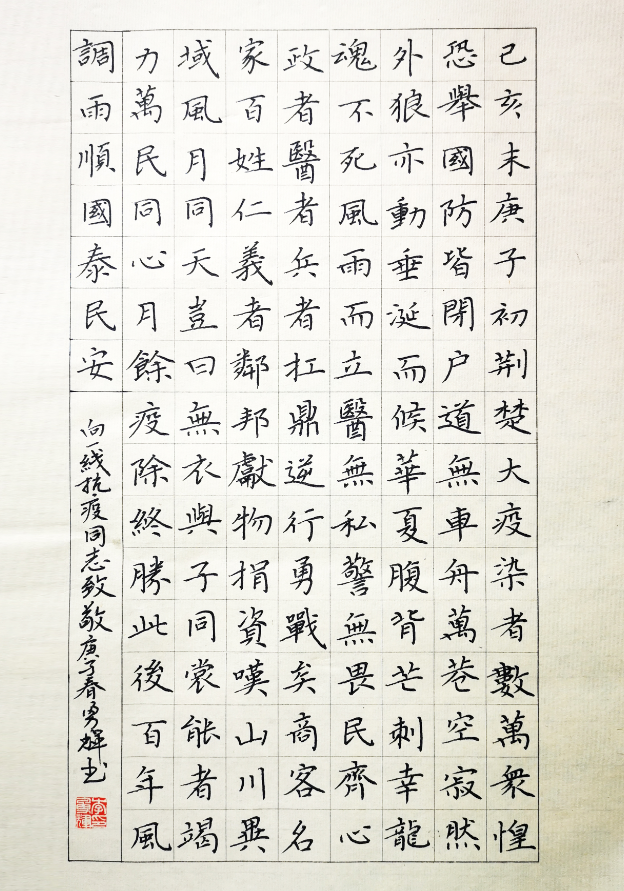 己亥末庚子初荆楚大疫染者數萬衆惶
恐舉國防皆閉户道無車舟萬巷空寂然
外狼亦動垂涎而候華夏腹背芒刺幸龍
魂不死風雨而立醫無私警無畏民齊心
政者醫者兵者扛鼎逆行勇戰矣商客名
家百姓仁義者鄰邦獻物捐資嘆山川異
域風月同天豈曰無衣與子同裳能者竭
力萬民同心月餘疫除終勝此後百年風
調雨順國泰民安
向一綫抗疫同志致敬庚子春勇輝书